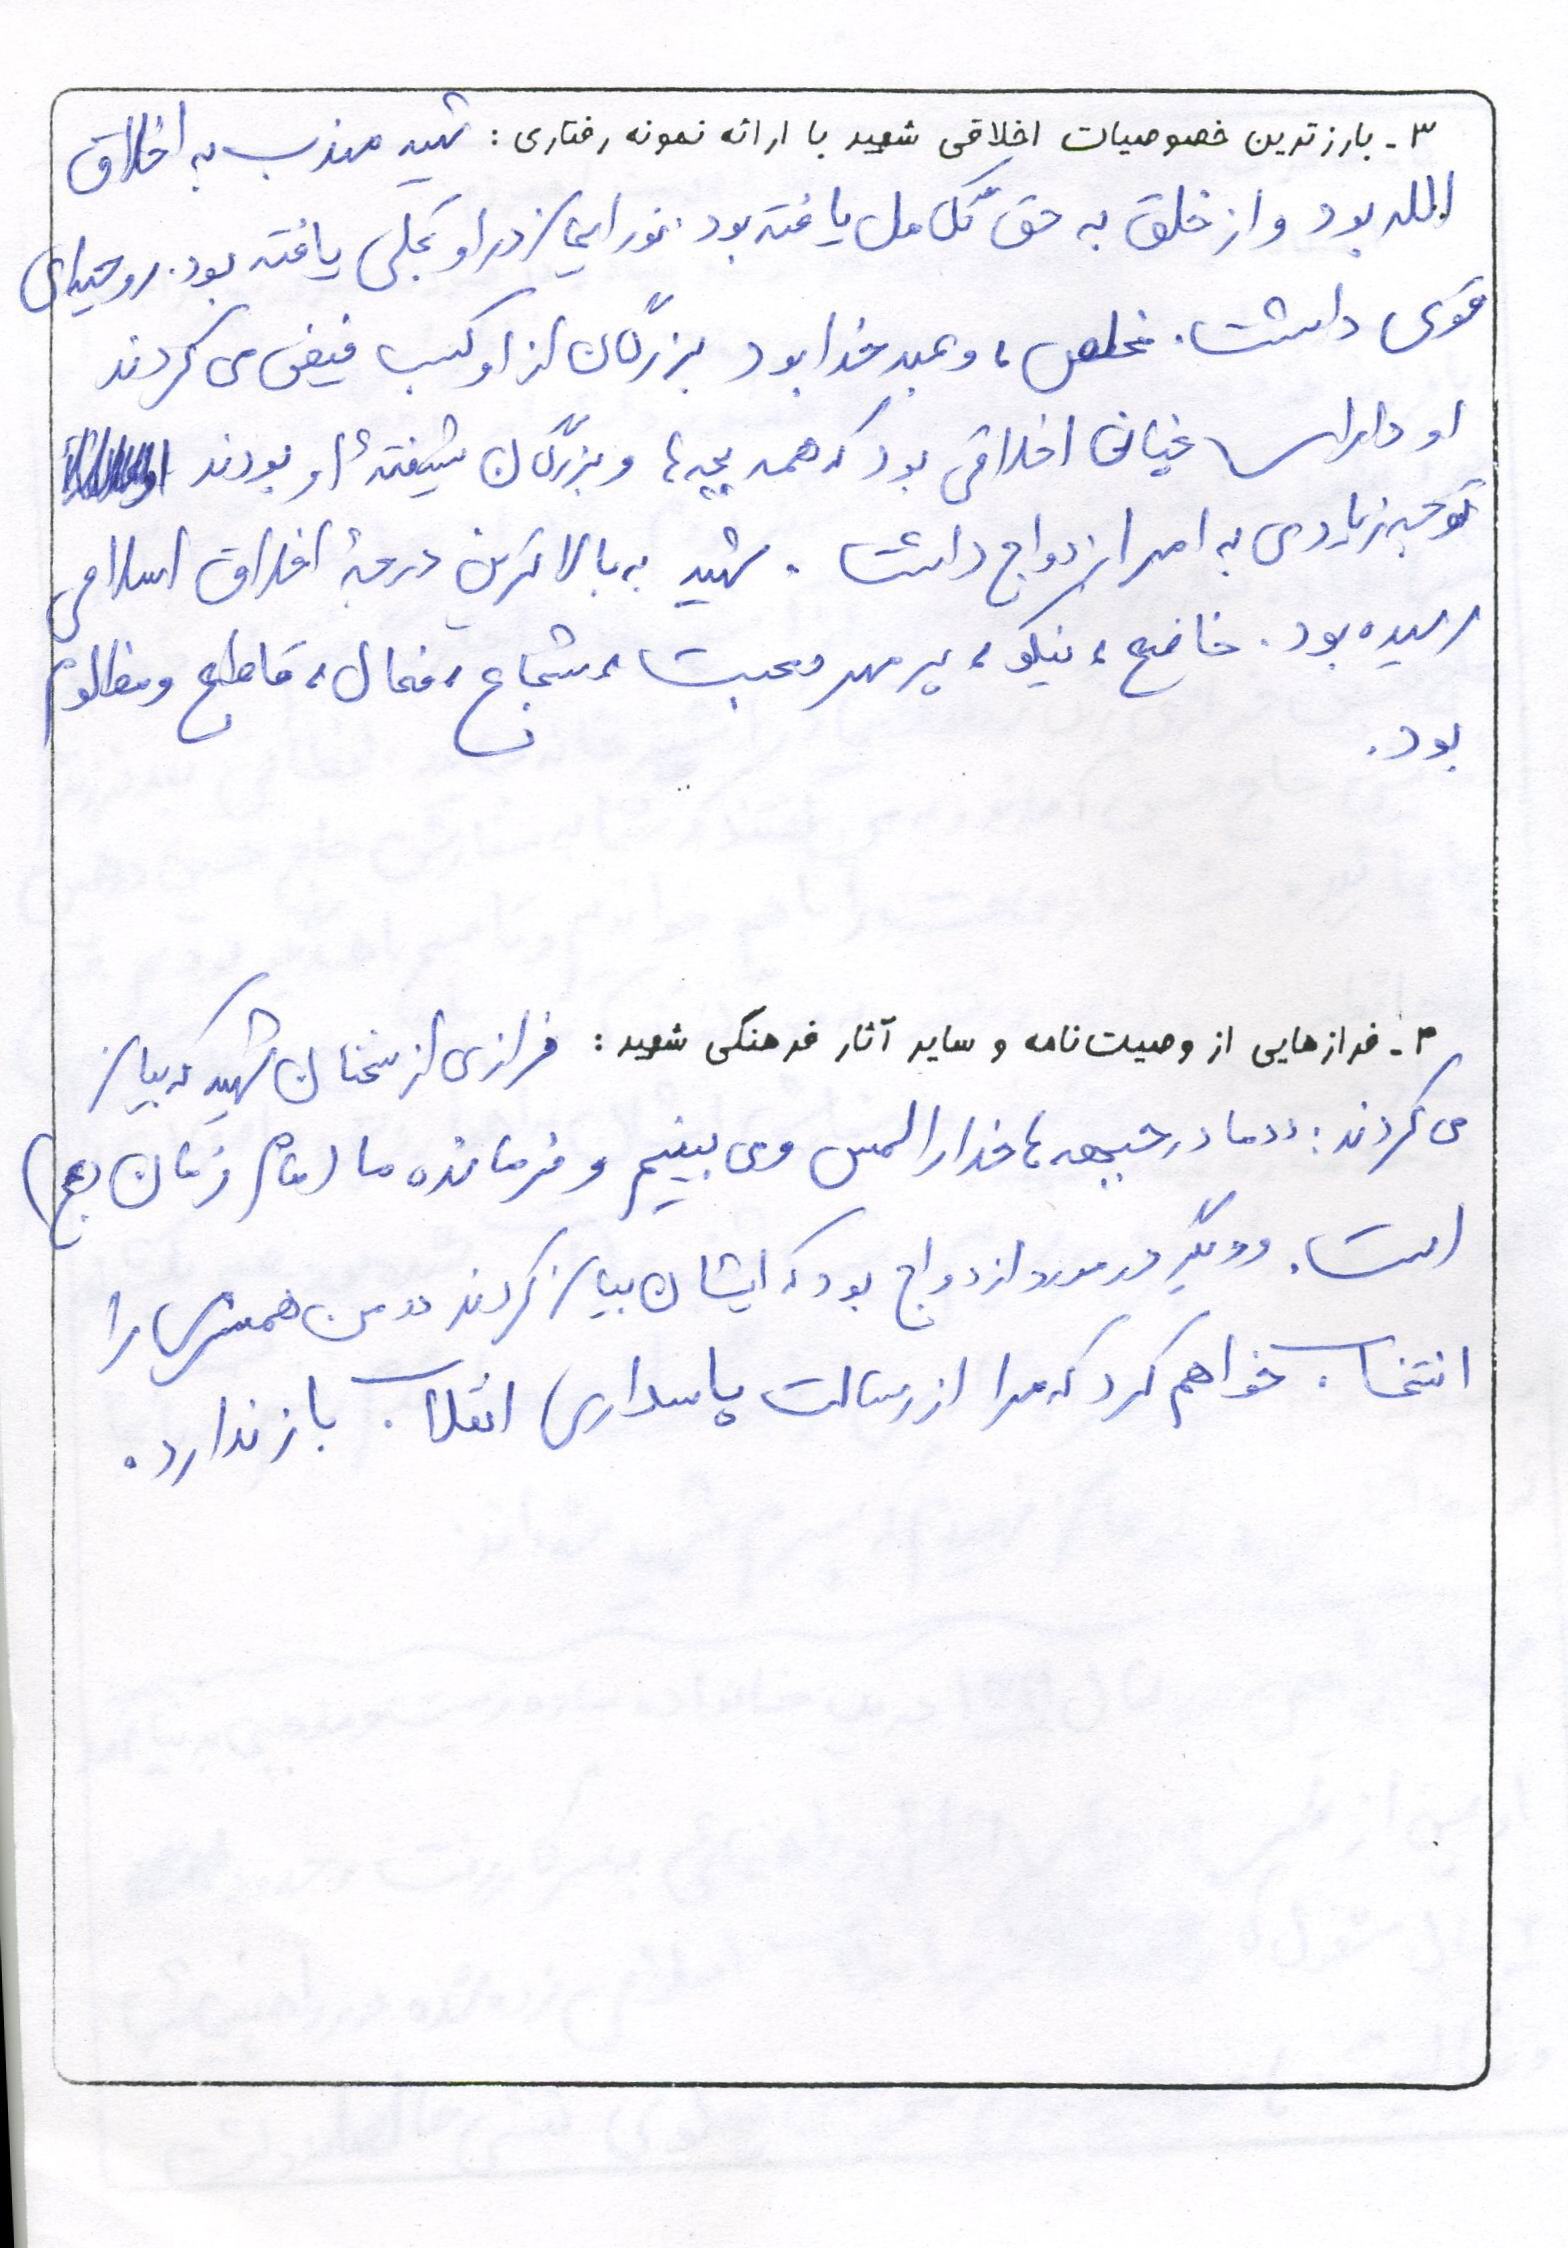 ۳ - بارزترین خصوصیات اخلاقی شهید با ارائه نمونه رفتاری : شهید مهذب به اخلاق
الله بود و از خلق به حق تکامل یافته بود. نور ایمان در او تجلی یافته بود. روحیه‌ای
قوی داشت. مخلص، و عبد خدا بود بزرگان از او کسب فیض می کردند
او دارای چنان اخلاقی بود که همه بچه ها و بزرگان شیفتهٔ او بودند
توجه زیادی به امر ازدواج داشت. شهید به بالاترین درجهٔ اخلاق اسلامی
رسیده بود. خاضع، نیکو، پر مهر و محبت، شجاع، فعال، قاطع و مظلوم
بود.
۴ - فرازهایی از وصیت‌نامه و سایر آثار فرهنگی شهید : فرازی از سخنان شهید که بیان
می کردند: «ما در جبهه ها خدا را لمس و می بینیم و فرمانده ما امام زمان (عج)
است. و دیگر در مورد ازدواج بود که ایشان بیان کردند «من همسری را
انتخاب خواهم کرد که مرا از رسالت پاسداری انقلاب باز ندارد.